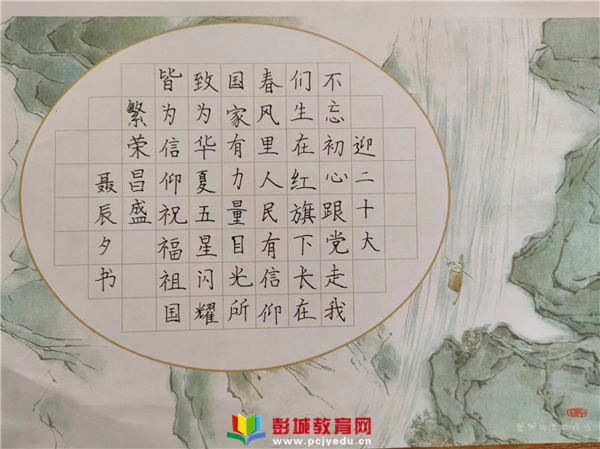 迎二十大
不忘初心跟党走我
们生在红旗下长在
春风里人民有信仰
国家有力量目光所
致为华夏五星闪耀
皆为信仰祝福祖国
繁荣昌盛
聂辰夕书
彭城教育网
www.pcjyedu.cn